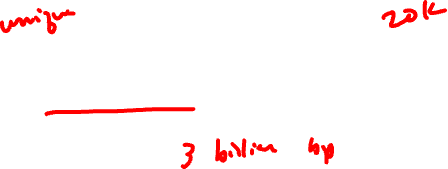 unique 20K
3 billion bp